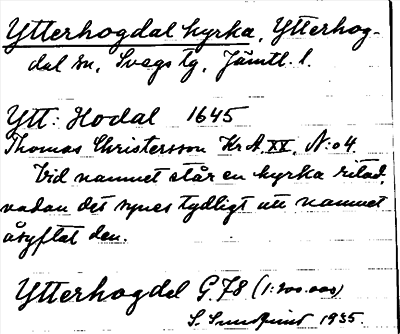 Ytterhogdal kyrka, Ytterhog-
dal sn, Svegs tg, Jämtl. l.
Ytt: Hodal 1645
Thomas Christersson Kr A. XX, N:o 4.
Vid namnet står en kyrka ritad,
vadan det synes tydligt att namnet
åsyftat den.
Ytterhogdal G. 78 (1:200.000)
S. Sundqvist 1935.